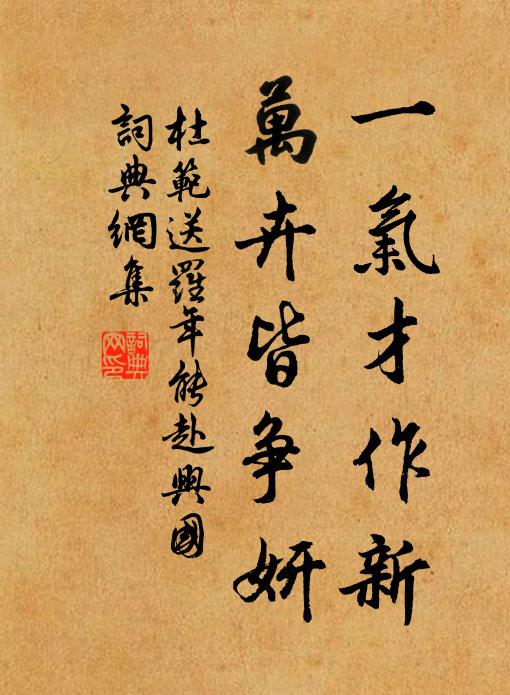 一氣才作新
萬卉皆争妍
杜範送羅年能赴興國
詞典網集
詞典网印